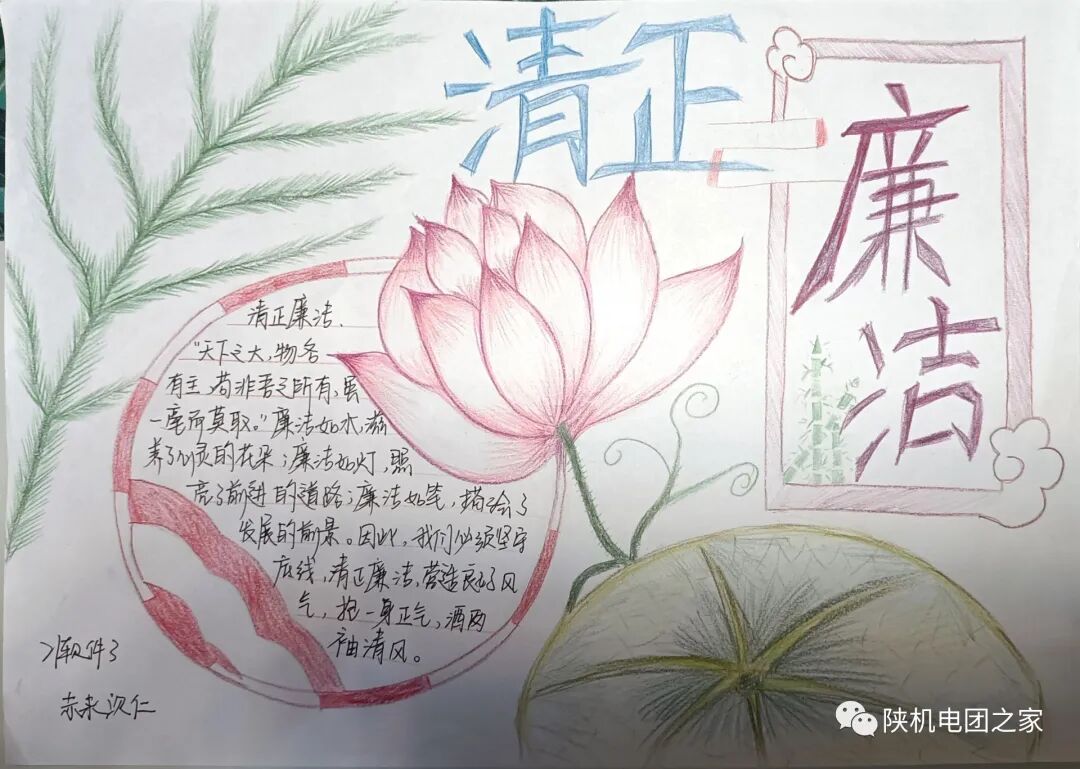 清正
廉洁
清正廉洁.
"天下之大,物各
有主,苟非吾之所有,虽
一毫而莫取。"廉洁如水,滋
养了心灵的花朵;廉洁如灯,照
亮了前进的道路;廉洁如笔,描绘了
发展的前景。因此,我们必须坚守
底线,清正廉洁,营造良好风
气,抱一身正气,洒两
袖清风。
次仁
陕机电团之家